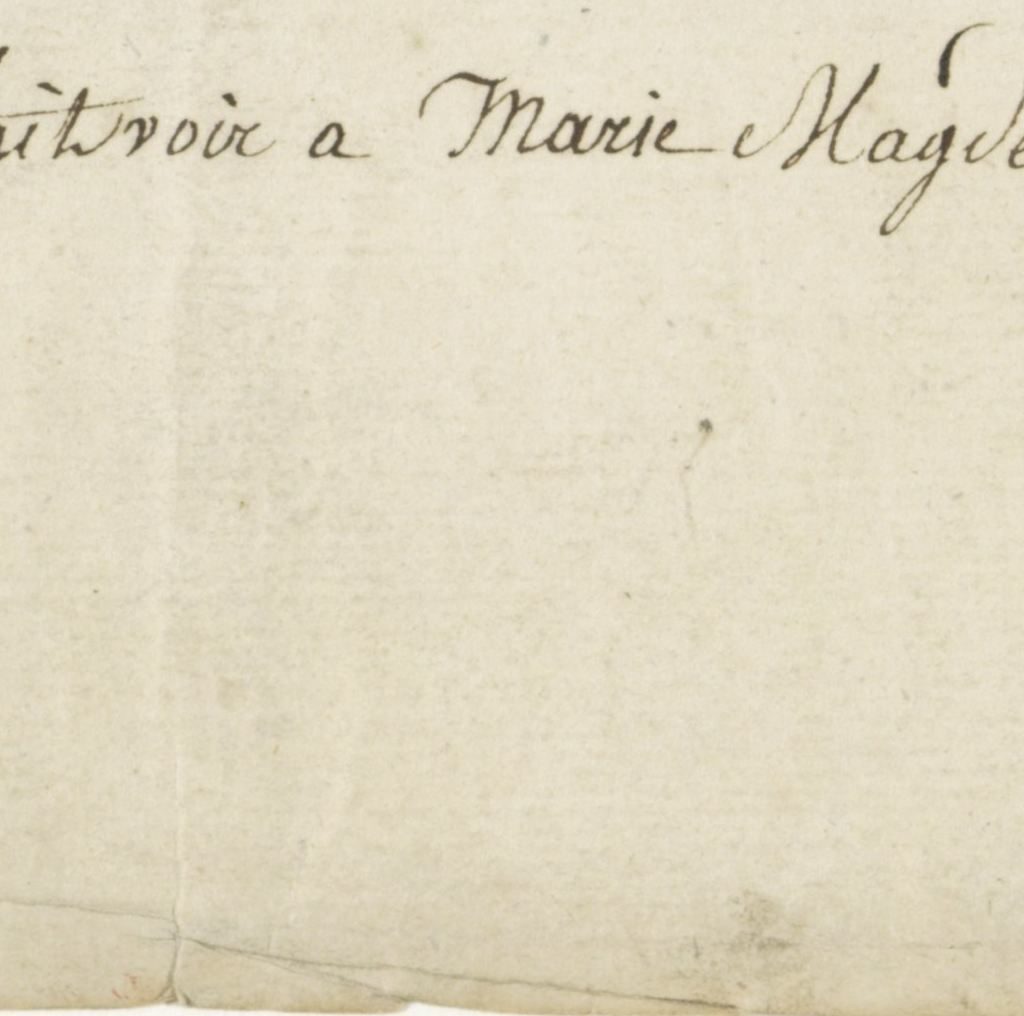 ait voir a Marie Magde